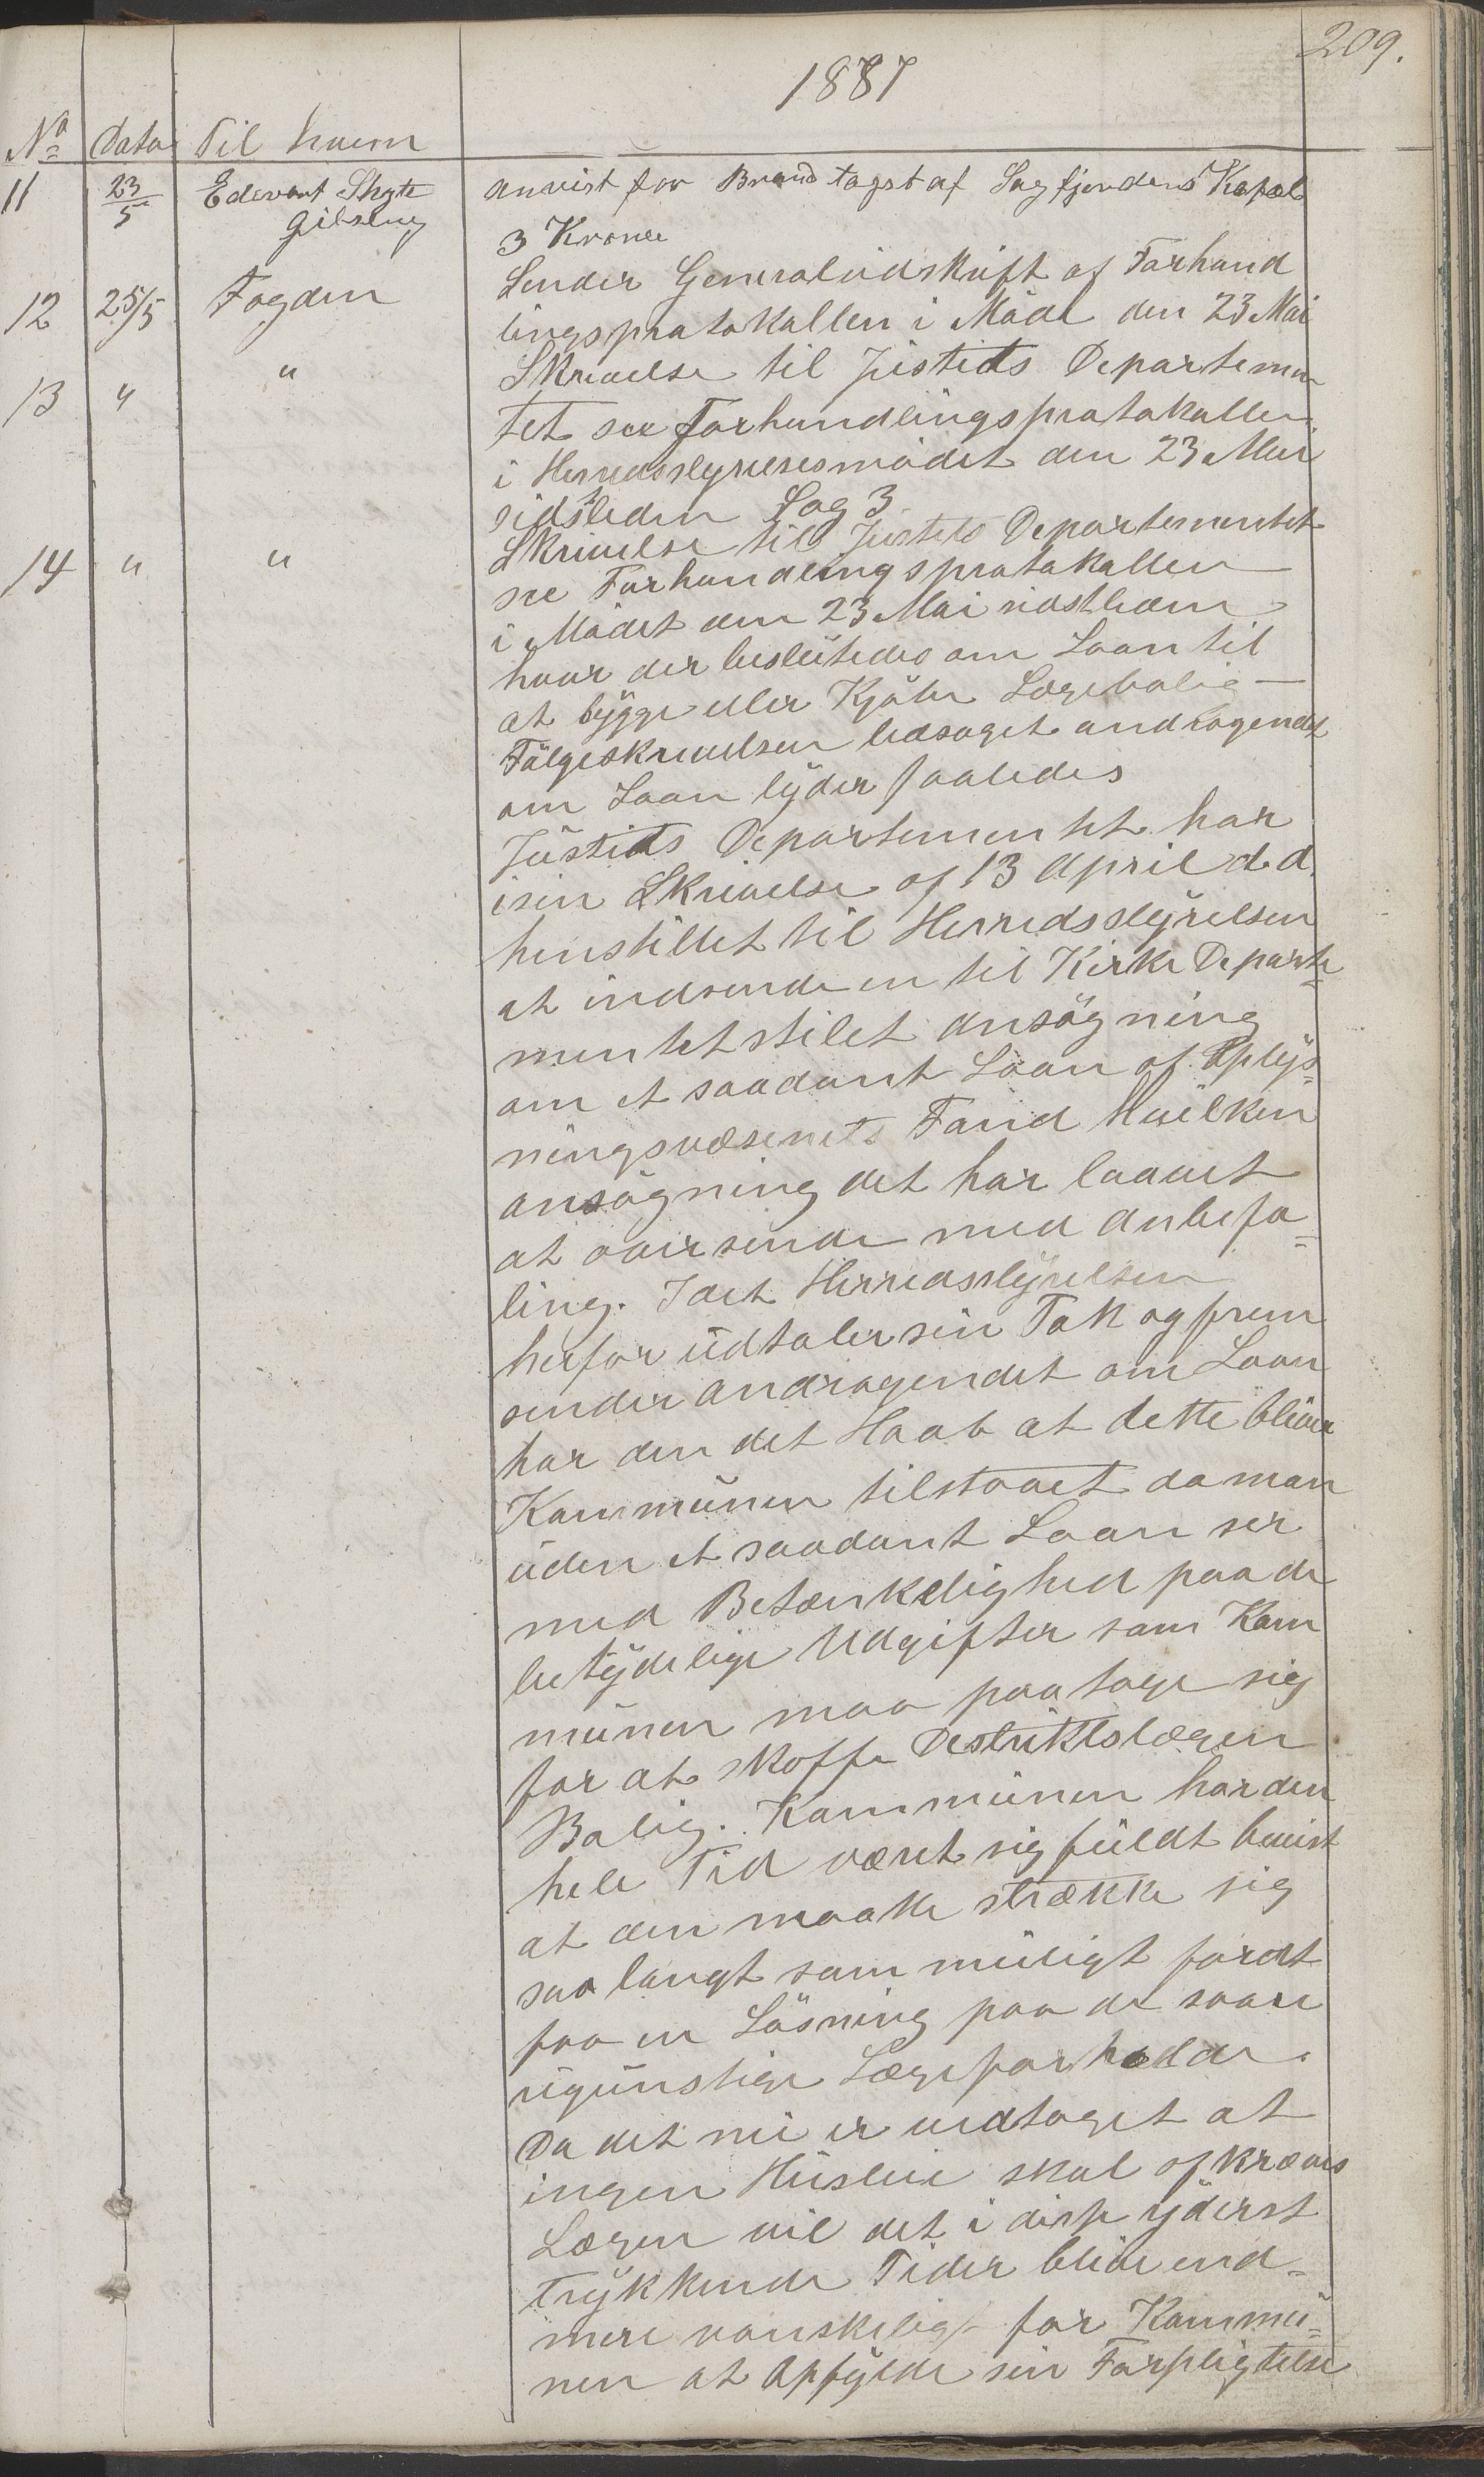 209.
1887
No Dato Til hvem
11 23/5 Edevart Skyte anvist for Brand tagst af Sagfjordens Kapel
Gilseng 3 Kroner
12 25/5 Fogden Sender Generaludskrift af Forhand
lingspratakallen i Mödet den 23 Mai
13 " " Skrivelse til Justits Departemen
tet see Forhandlingspratakallen
i Herredsstyrelsesmödet den 23 Mai
sidstleden Sag 3
14 " " Skrivelse til Justits Departementet
see Forhandlingspratakallen
i Mödet den 23 Mai sidstleden
hvor der besluttedes om Laan til
at bygge eller Kjöbe Lægebolig —
Fölgeskrivelsen ledsaget andragendet
om Laan lyder saaledes
Justits Departementet har
i sin Skrivelse af 13 April d. d.
henstillet til Herredsstyrelsen
at indsende en til Kirke Departe=
mentet stilet ansögning
om et saadant Laan af Oplys=
ningsvæsenets Fond Hvilken
ansögning det har lovet
at oversende med anbefa=
ling. Idet Herredsstyrelsen
herfor udtaler sin Tak og frem
sender andragendet om Laan
har den det Haab at dette bliver
Kommunen tilstaaet da man
uden et saadant Laan ser
med Betænkelighed paa de
betydelige Udgifter som Kom
munen maa paatage sig
for at skaffe Destriktslægen
Bolig. Kommunen har den
hele Tid været sig fuldt bevist
at den maatte strække sig
saa langt som muligt for at
faa en Lösning paa de saare
ugunstige Lægeforholde.
Da det nu er vedtaget at
ingen Husleie skal afkræves
Lægen vil det i disse yderst
trykkende Tider blive end=
mere vanskeligt for Kommu=
nen at Opfylde sin Forpligtelse